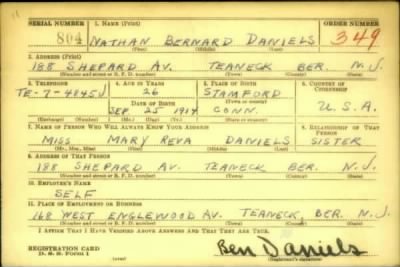 SERIAL NUMBER 1. NAME (Print) ORDER NUMBER
804 NATHAN BERNARD DANIELS 349
(First) (Middle) (Last)
2. ADDRESS (Print)
188 SHEPARD AV. TEANECK BER. N.J.
(Number and street or R. F. D. number) (Town) (County) (State)
3. TELEPHONE 4. AGE IN YEARS 5. PLACE OF BIRTH 6. COUNTRY OF CITIZENSHIP
TE-7-4845J 26 STAMFORD
DATE OF BIRTH (Town or county)
SEP 25 1914 CONN. U.S.A.
(Exchange) (Number) (Mo.) (Day) (Yr.) (State or country)
7. NAME OF PERSON WHO WILL ALWAYS KNOW YOUR ADDRESS 8. RELATIONSHIP OF THAT PERSON
MISS MARY REVA DANIELS SISTER
(Mr., Mrs., Miss) (First) (Middle) (Last)
9. ADDRESS OF THAT PERSON
188 SHEPARD AV. TEANECK BER. N.J.
(Number and street or R. F. D. number) (Town) (County) (State)
10. EMPLOYER'S NAME
SELF
11. PLACE OF EMPLOYMENT OR BUSINESS
168 WEST ENGLEWOOD AV. TEANECK, BER. N.J.
(Number and street or R. F. D. number) (Town) (County) (State)
I AFFIRM THAT I HAVE VERIFIED ABOVE ANSWERS AND THAT THEY ARE TRUE.
REGISTRATION CARD
D. S. S. Form 1 (over) Ben Daniels
(Registrant's signature)